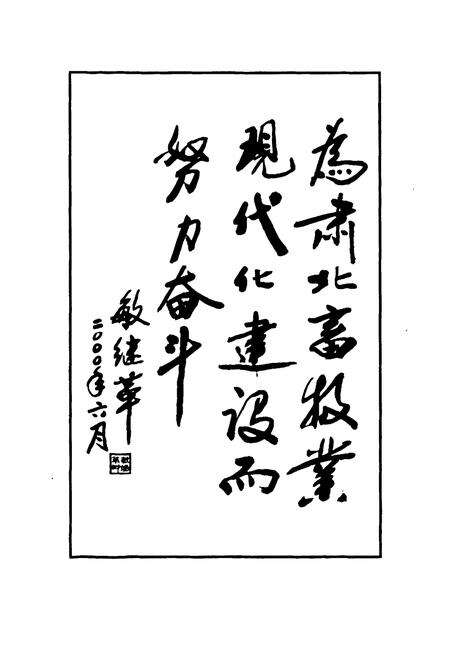 為肃北畜牧業
現代化建设而
努力奋斗
敏继革
二〇〇〇年六月